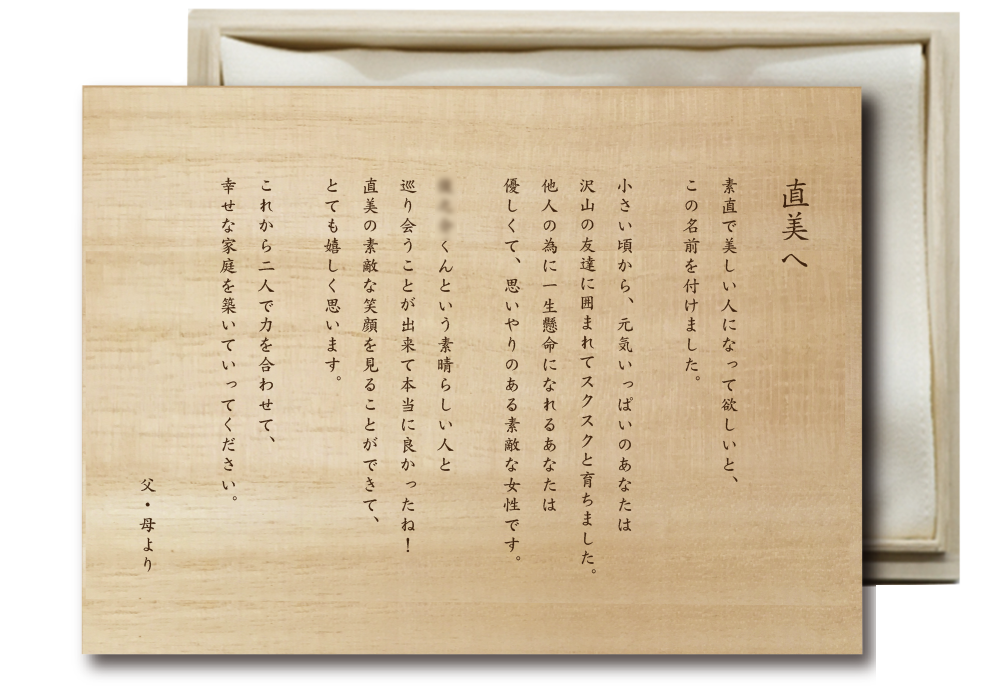 直美へ
素直で美しい人になって欲しいと、
この名前を付けました。
小さい頃から、元気いっぱいのあなたは
沢山の友達に囲まれてスクスクと育ちました。
他人の為に一生懸命になれるあなたは
優しくて、思いやりのある素敵な女性です。
くんという素晴らしい人と
巡り会うことが出来て本当に良かったね！
直美の素敵な笑顔を見ることができて、
とても嬉しく思います。
これから二人で力を合わせて、
幸せな家庭を築いていってください。
父・母より